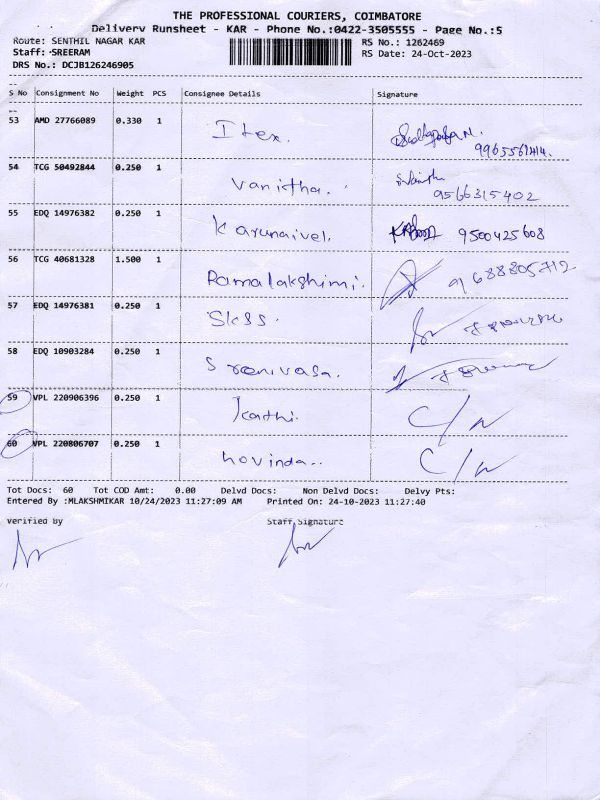 THE PROFESSIONAL COURIERS, COIMBATORE
Delivery Runsheet - KAR - Phone No.:0422-3505555 - Page No.:5
Route: SENTHIL NAGAR KAR RS No.: 1262469
Staff: SREERAM RS Date: 24-Oct-2023
DRS No.: DCJB126246905
S No Consignment No Weight PCS Consignee Details Signature
53 AMD 27766089 0.330 1 Itex.
54 TCG 50492844 0.250 1 Vanitha.
9566315402
55 EDQ 14976382 0.250 1 Karunaivel. 9500425608
56 TCG 40681328 1.500 1 Ramalakshimi. 9688805712
57 EDQ 14976381 0.250 1 SKSS.
58 EDQ 10903284 0.250 1 Srenivasa.
59 VPL 220906396 0.250 1 Karthi. C/n
60 VPL 220806707 0.250 1 hovinda.. C/n
Tot Docs: 60 Tot COD Amt: 0.00 Delvd Docs: Non Delvd Docs: Delvy Pts:
Entered By :MLAKSHMIKAR 10/24/2023 11:27:09 AM Printed On: 24-10-2023 11:27:40
Verified By Staff Signature